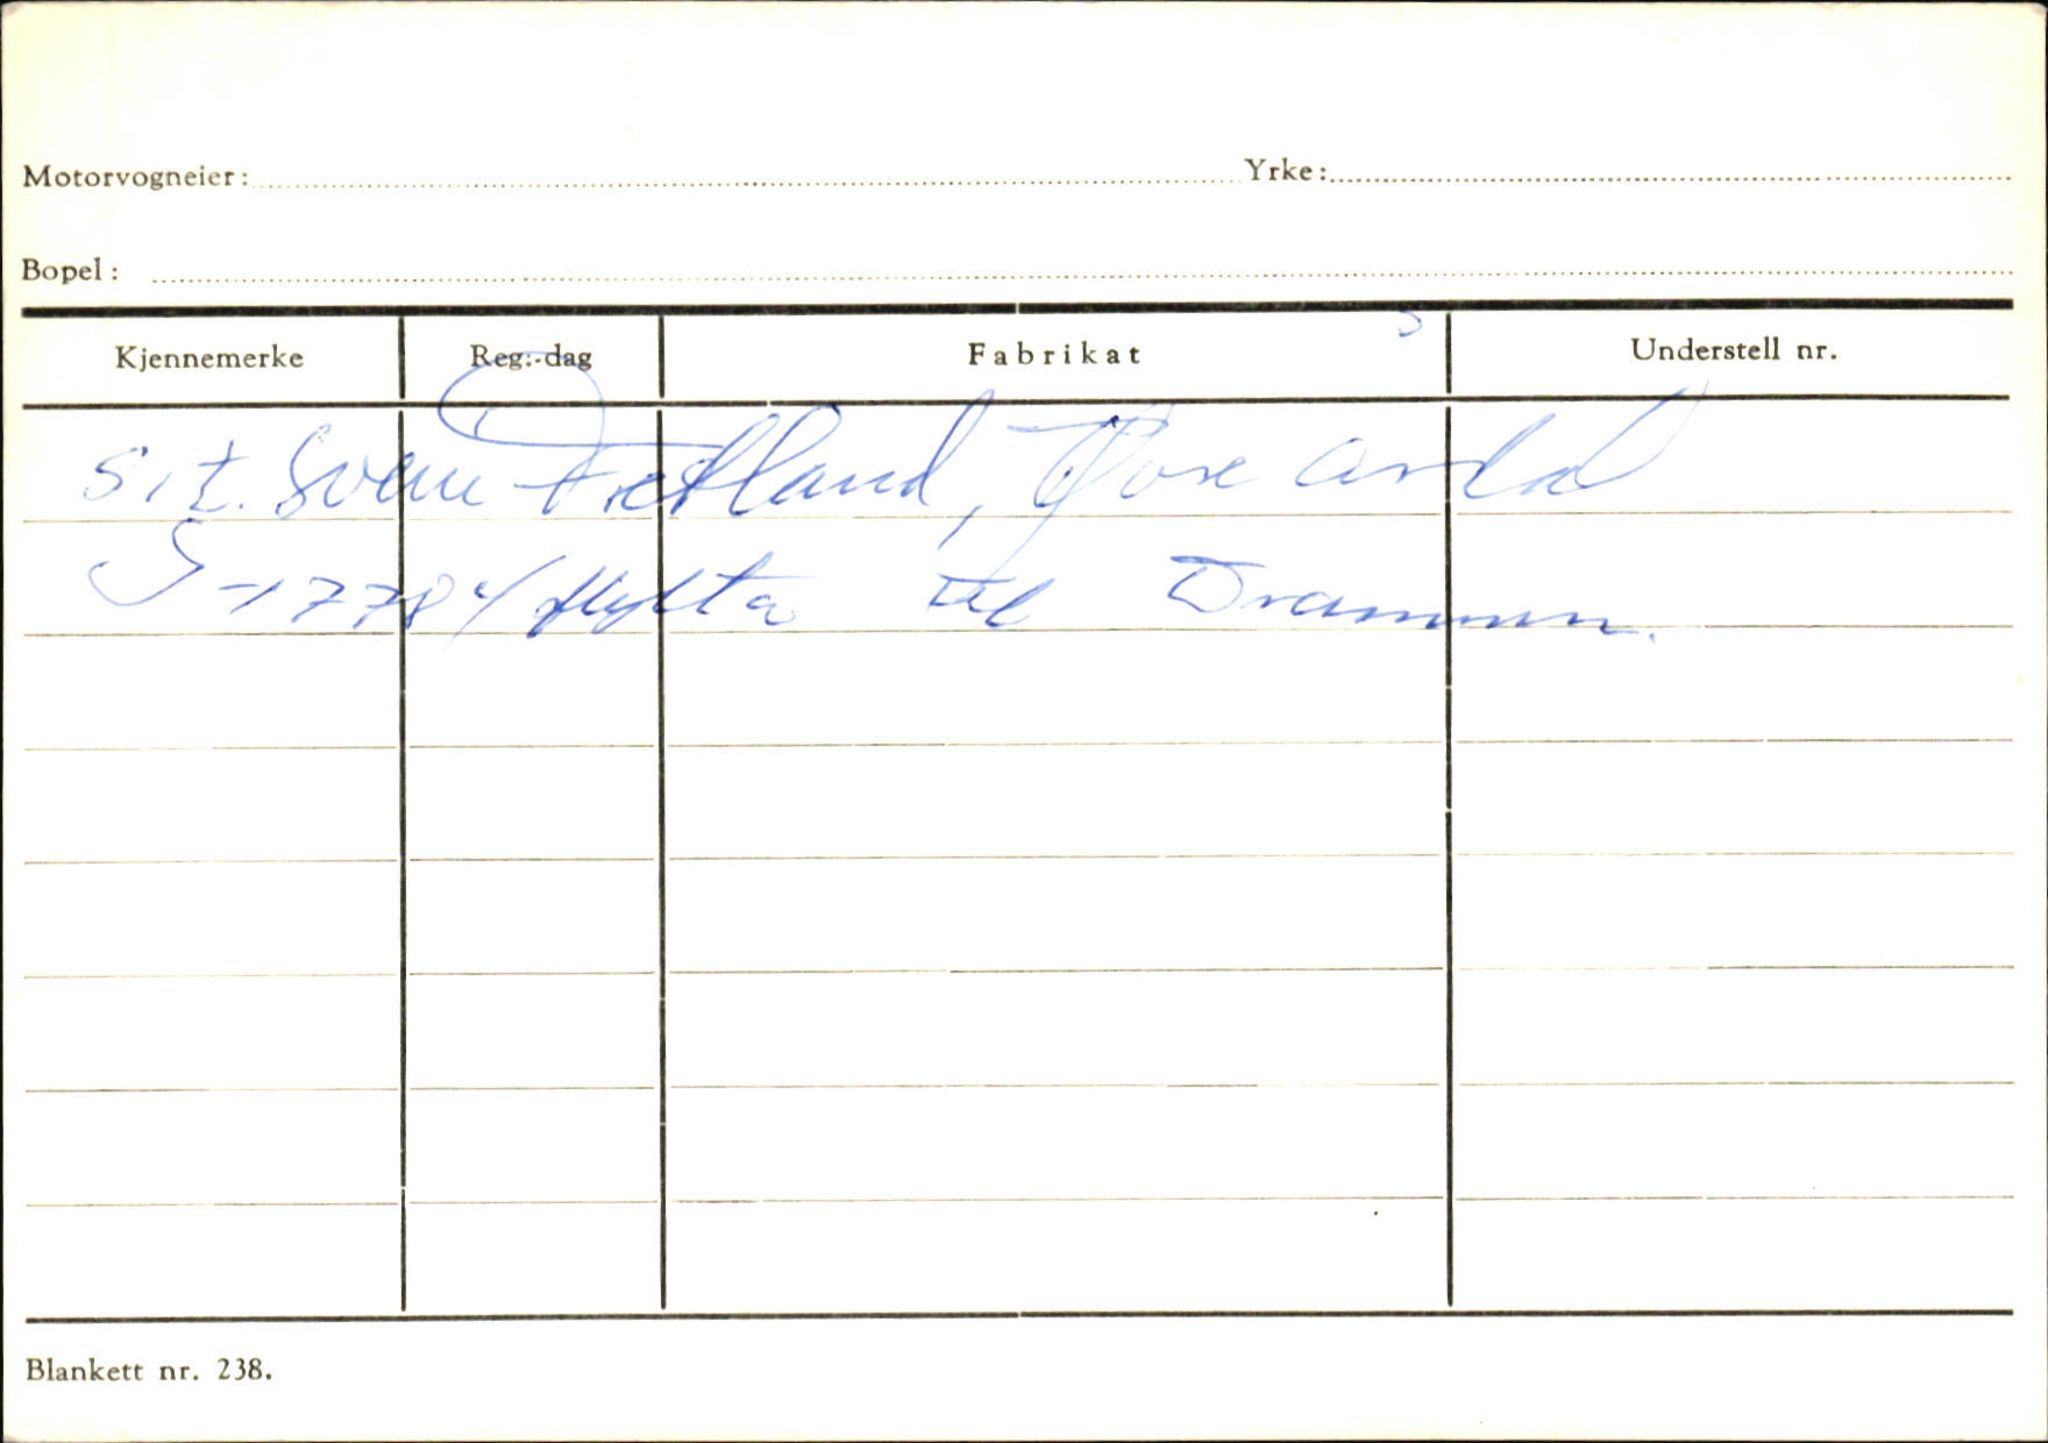 Motorvogneier: Yrke:
Bopel:
Kjennemerke Reg:-dag Fabrikat Understell nr.
s.t. Svein Fretland, Øvre Årdal
S-17784 flytta til Drammen.
Blankett nr. 238.